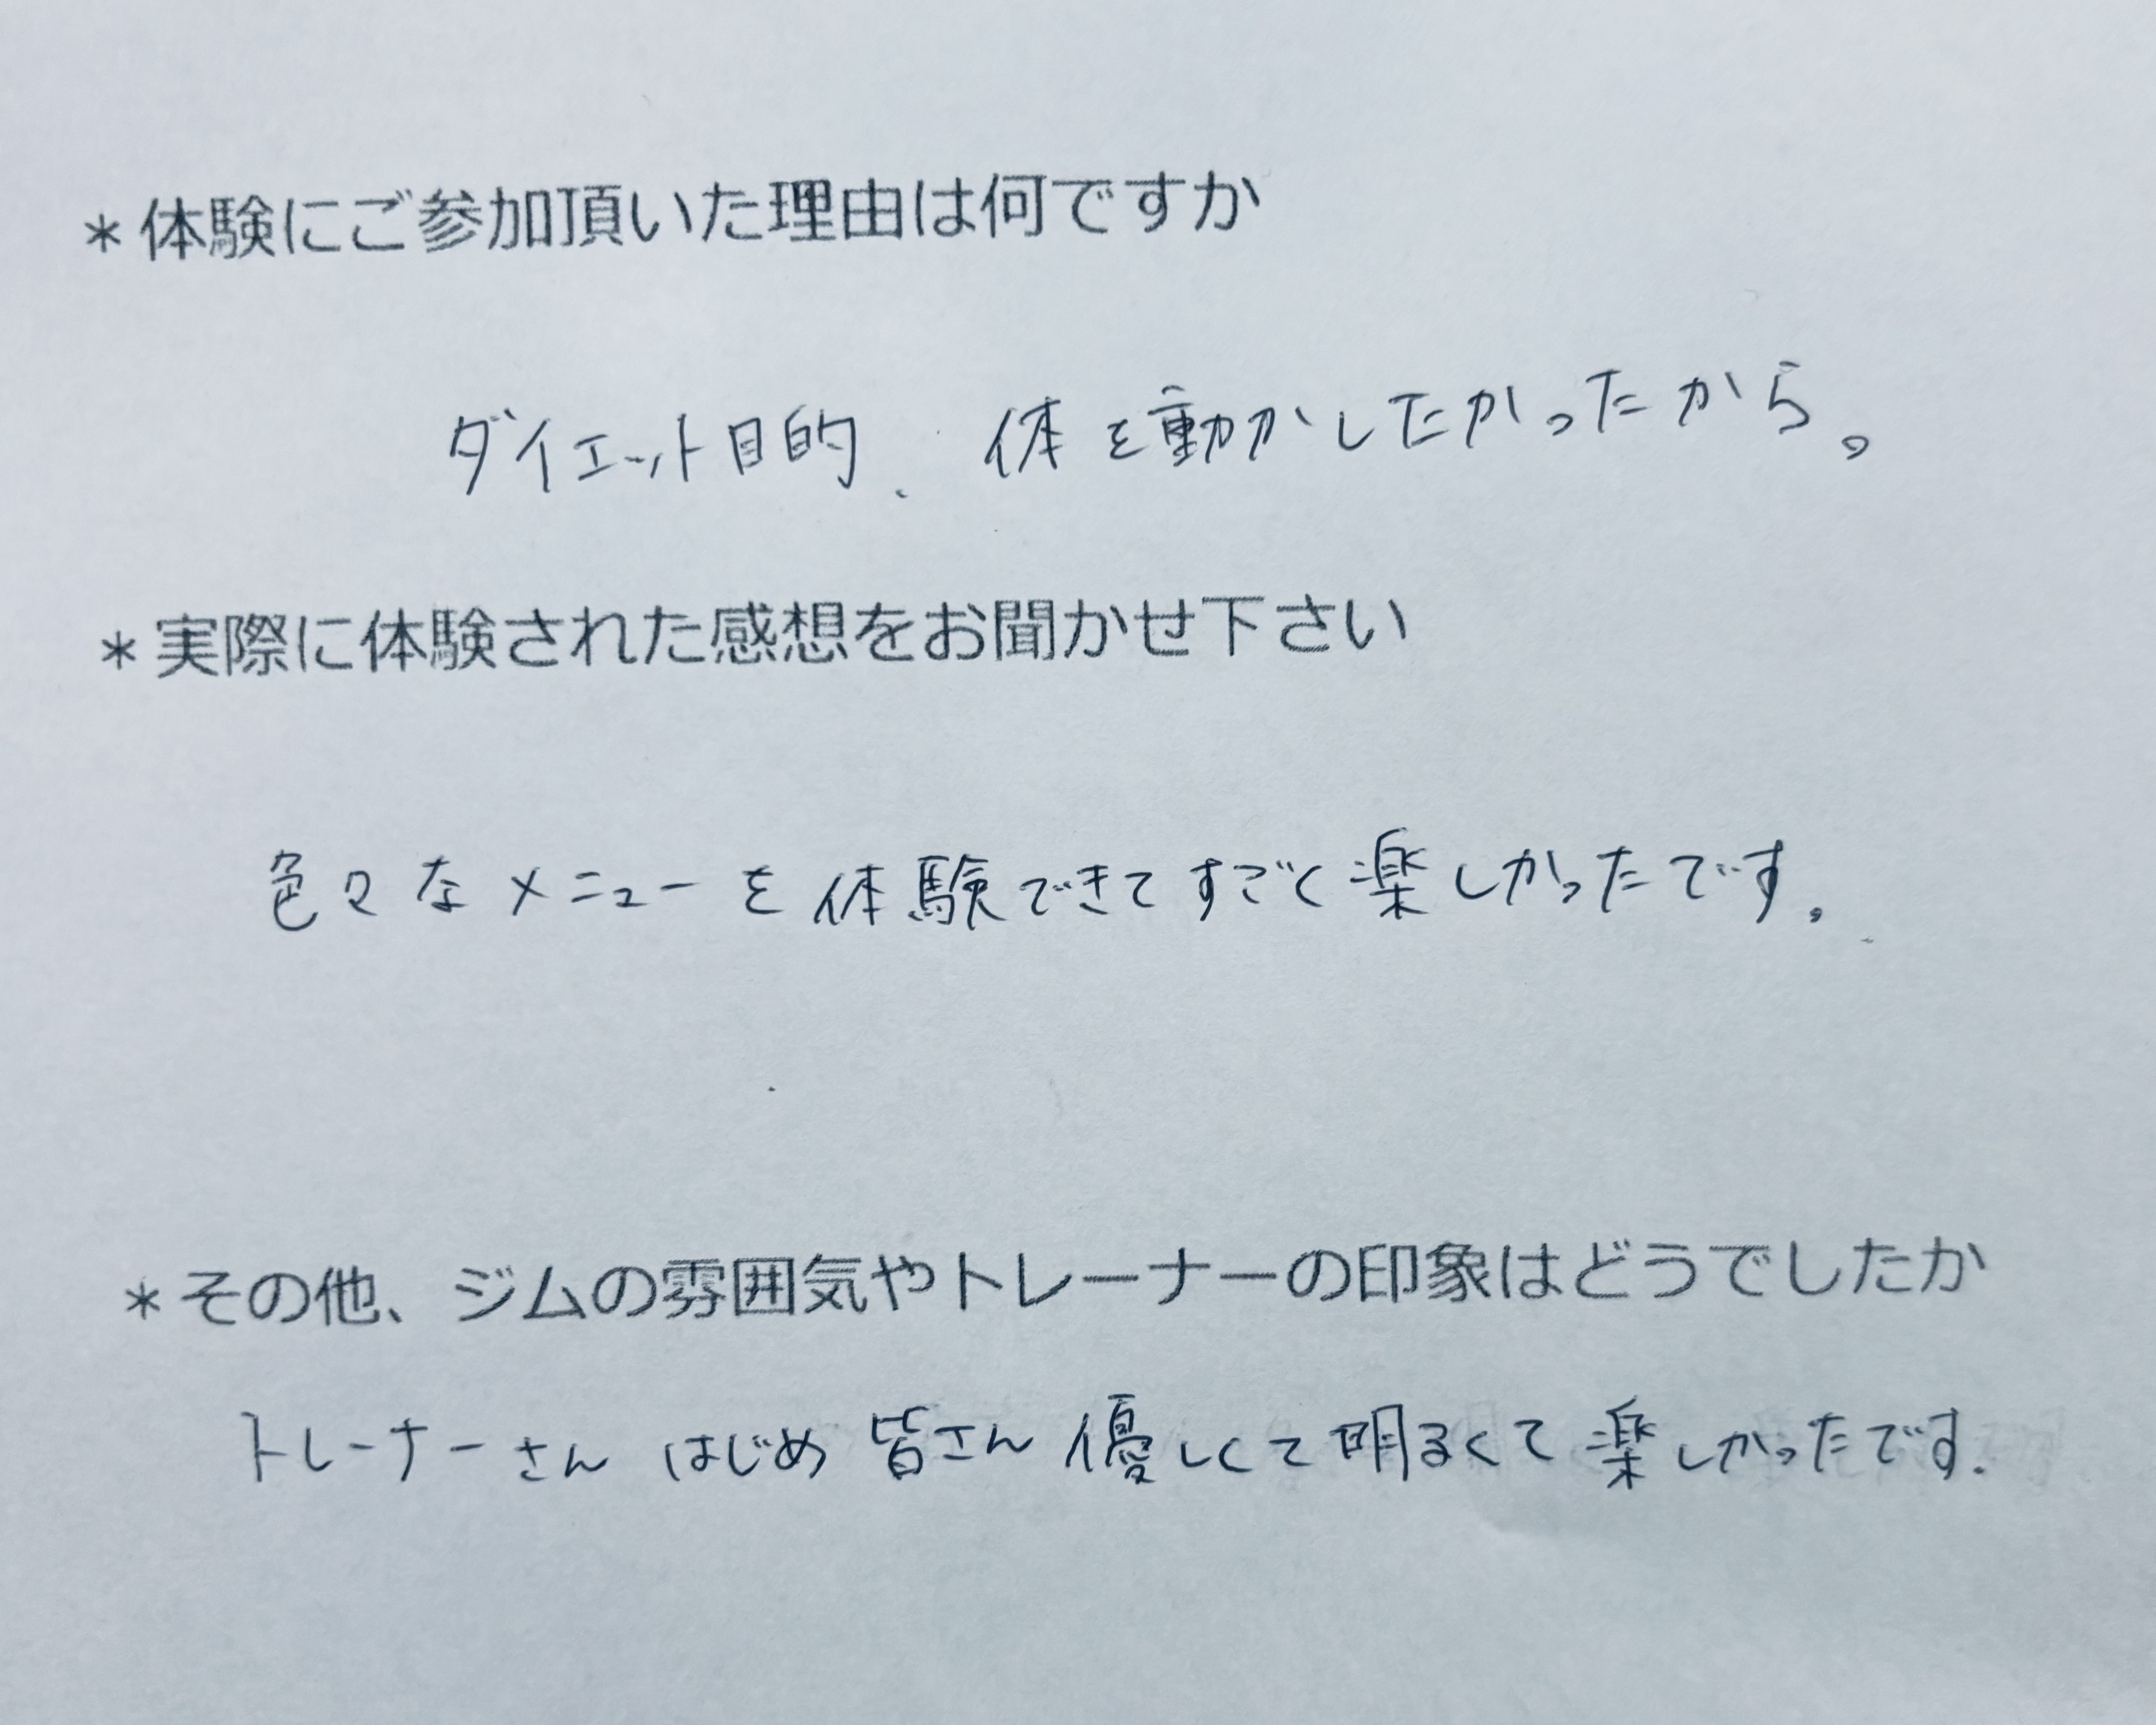 ＊体験にご参加頂いた理由は何ですか
ダイエット目的、体を動かしたかったから。
＊実際に体験された感想をお聞かせ下さい
色々なメニューを体験できてすごく楽しかったです。
＊その他、ジムの雰囲気やトレーナーの印象はどうでしたか
トレーナーさんはじめ皆さん優しくて明るくて楽しかったです.